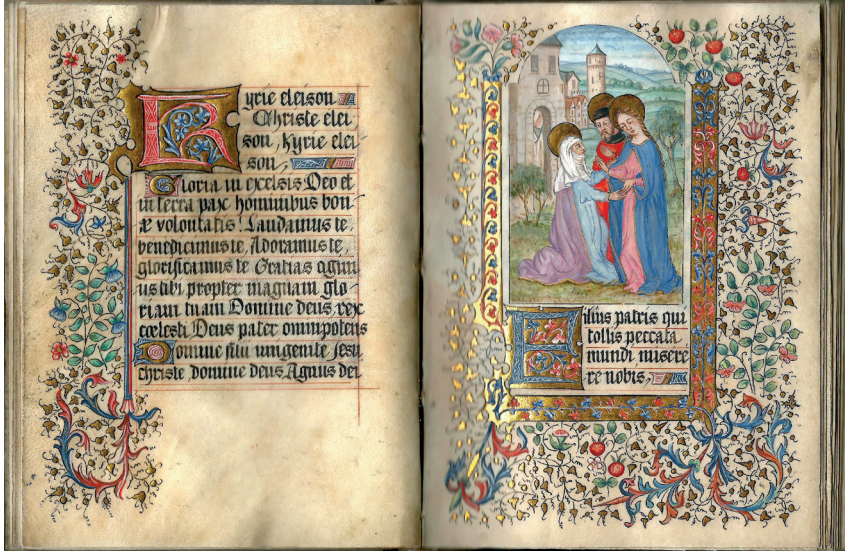 Kyrie eleison
Christe elei
son, Kyrie elei
son,
Gloria in excelsis Deo et
in terra pax hominibus bon
æ voluntatis! Laudamus te,
benedicimus te, Adoramus te,
glorificamus te Gratias agim
us tibi propter magnam glo
riam tuam Domine deus, rex
cœlesti, Deus pater omnipotens
Domine fili unigenite Jesu
christe, domine deus, Agnus dei
Filius patris qui
tollis peccata
mundi misere
re nobis,